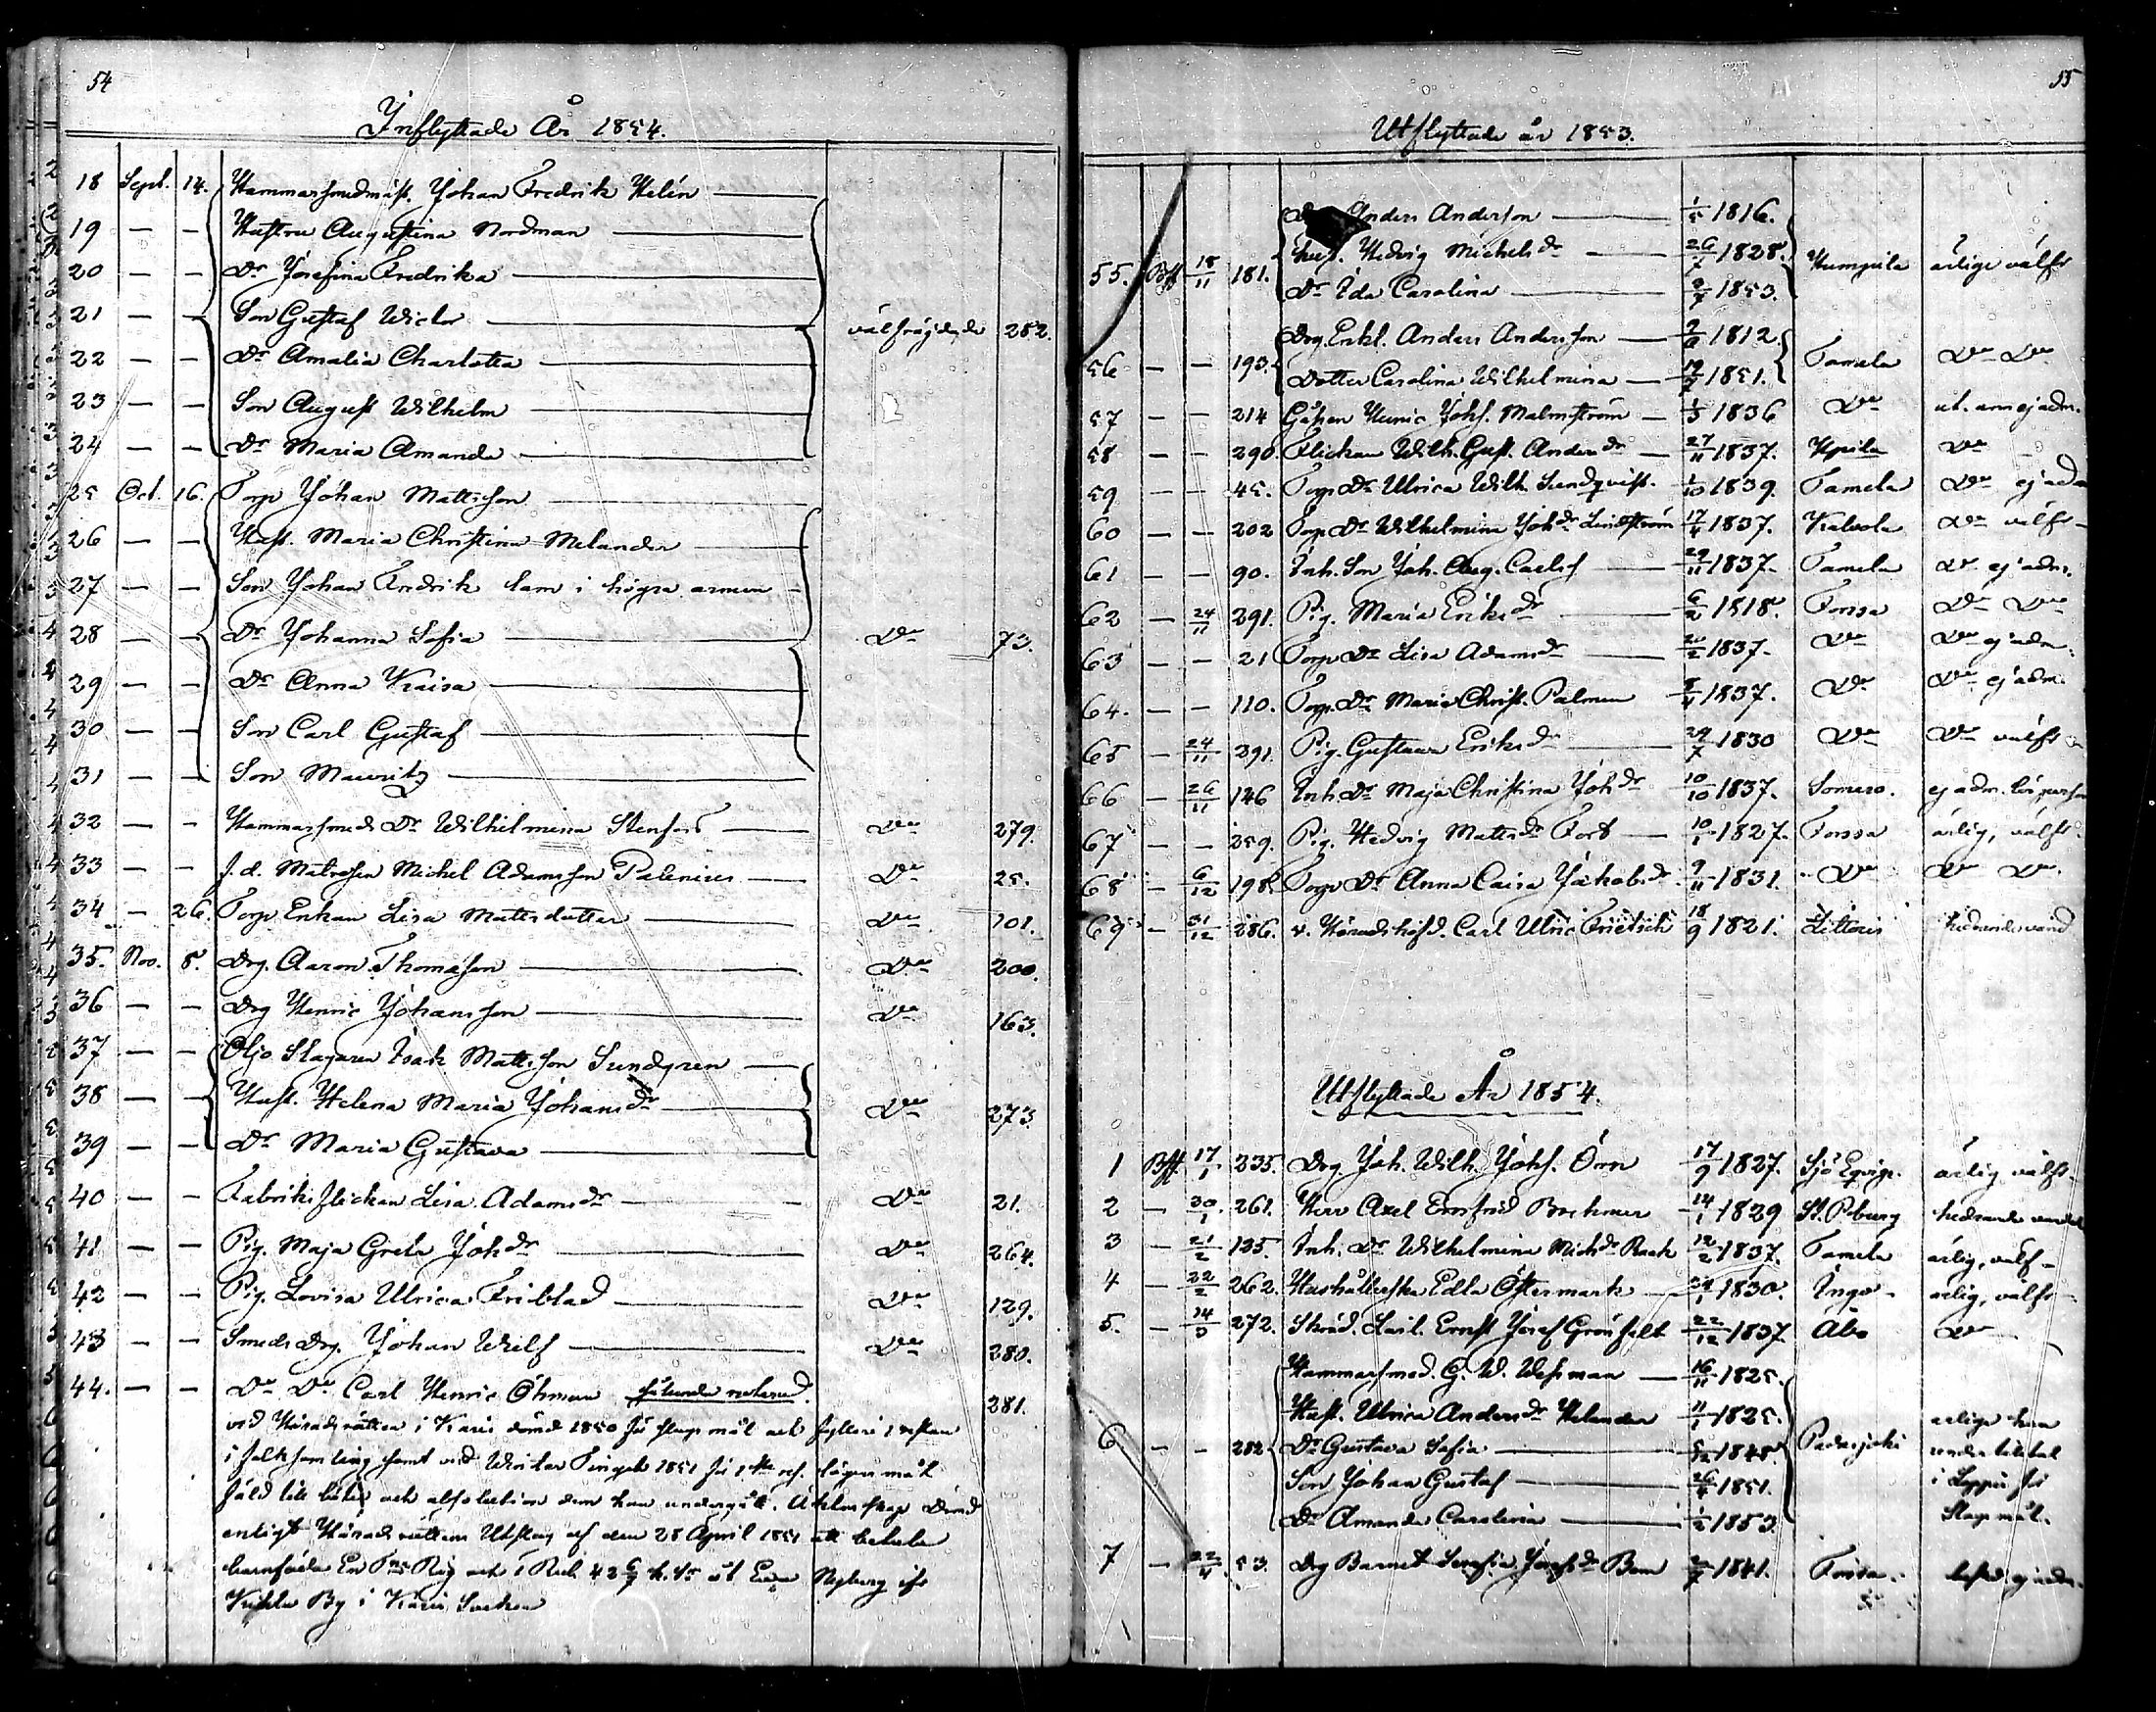 54
Inflyttade År 1854.
18 Sept. 14. Hammarsmedmäst. Johan Fredrik Helén
19 — — Hustru Augustina Nordman
20 — — Dr Josefina Fredrika
21 — — Son Gustaf Wictor välfrägdade 282.
22 — — Dr Amalia Charlotta
23 — — Son August Wilhelm
24 — — Dr Maria Amanda
25 Oct. 16. Torp. Johan Mattsson
26 — — Hust. Maria Christina Melander
27 — — Son Johan Fredrik lam i högra armen
28 — — Dr Johanna Sofia Do 73.
29 — — Dr Anna Kaisa
30 — — Son Carl Gustaf
31 — — Son Mauritz
32 — — Hammarsmeds Dr Wilhelmina Stenfors Do 279.
33 — — f.d. Matrosen Michel Adamsson Palenius Do 25.
34 — 26. Torp. Enkan Lisa Mattsdotter Do 101.
35. Nov. 8. Drg. Aaron Thomasson Do 200.
36 — — Drg Henric Johansson Do 163.
37 — — Oljo Slagaren Isak Mattsson Sundgren
38 — — Hust. Helena Maria Johansdr Do 273.
39 — — Dr Maria Gustava
40 — — Fabriksflickan Lisa Adamsdr Do 21.
41 — — Pig. Maja Greta Johdr Do 264.
42 — — Pig. Lovisa Ulrica Friblad Do 129.
43 — — Smeds Drg. Johan Wilf Do 280.
44. — — Do Do Carl Henric Öhman sålunda noterad 281.
vid Häradsrätten i Karis dömd 1850 för slagsmål och fylleri
i folksamling samt vid Winter Tinget 1851 för
fäld till böter och absolution dem han undergått.
enligt Häradsrättens Utslag af den 28 April 1851 att betala
barnföda En Tna Råg och 1 Rub. 42 6/7 k. Sr åt Eva Nyberg ifr
By i Karis Socken
55
Utflyttade år 1853.
Anders Anderson 1/5 1816.
Hust. Hedvig Michelsdr 26/7 1828.
55. Bff 18/11 181. Dr Ida Carolina 2/7 1853. Humpila ärlige välfr
Drg. Enkl. Anders Andersson 2/6 1812.
56 — — 193. Dotter Carolina Wilhelmina 19/2 1851. Tamela Do Do
57 — — 214 Gossen Henric Johs. Malmström 1/3 1836 Do ej adm.
58 — — 290. Flickan Wilh. Gust. Andersdr 27/11 1837. Ypila Do
59 — — 45. Torp Dr Ulrica Wilh. Sundqvist. 1/10 1839. Tamela Do ej adm
60 — — 202 Torp. Dr Wilhelmina Johdr Lindström 17/4 1837. Kalvola Do välfr
61 — — 90. Inh. Son Joh. Aug. Carlss 29/11 1837. Tamela Do ej adm.
62 — 24/11 291. Pig. Maria Eriksdr 6/2 1818. Forssa Do Do
63 — — 21 Torp Dr Lisa Adamsdr 20/2 1837. Do Do ej adm.
64. — — 110. Torp. Dr Maria Christ. Palmen 8/4 1837. Do Do ej adm.
65 — 24/11 291. Pig. Gustava Eriksdr 29/7 1830 Do Do välfr
66 — 26/11 146 Inh. Dr Maja Christina Johdr 10/10 1837. Somero. ej adm.
67 — — 259. Pig. Hedvig Mattsdr Fort 10/1 1827. Forssa ärlig, välfr.
68 — 6/12 198. Torp Dr Anna Caisa Jakobsdr 9/11 1831. Do Do Do.
69 — 31/12 286. v. Häradshöfd. Carl Ulric Frietsch 18/9 1821. Littois hedrande vand
Utflyttade År 1854.
1 Bff. 17/1 235. Drg. Joh. Wilh. Johs. Örn 17/9 1827. Sjö Eqvip. ärlig välfr.
2 — 30/1 261. Herr Axel Ernfried Brehmer 14/1 1829 St. Pburg hedrande vandel
3 — 21/2 135. Inh. Dr Wilhelmina Michdr Raak 12/2 1837. Tamela ärlig, välf
4 — 22/2 262. Hushållerska Edla Östermark 24/1 1830. Ingo ärlig, välfr
5. — 14/3 272. Skräd. Lärl. Ernst Josef Grönfelt 22/12 1837 Åbo Do
Hammarsmed. G. W. Wesman 16/11 1825.
Hust. Ulrica Andersdr Helander 11/1 1825. ärlige han
6 — — 282 Dr Gustava Sofia 5/12 1848. Padasjoki under tilltal
Son Johan Gustaf 26/4 1851. i Loppis för
Dr Amanda Carolina 1/2 1853. Slagsmål.
7 — 22/4 53. Drg Barnet Serafia Josefsdr Bom 2/7 1841. Forssa. ej adm.